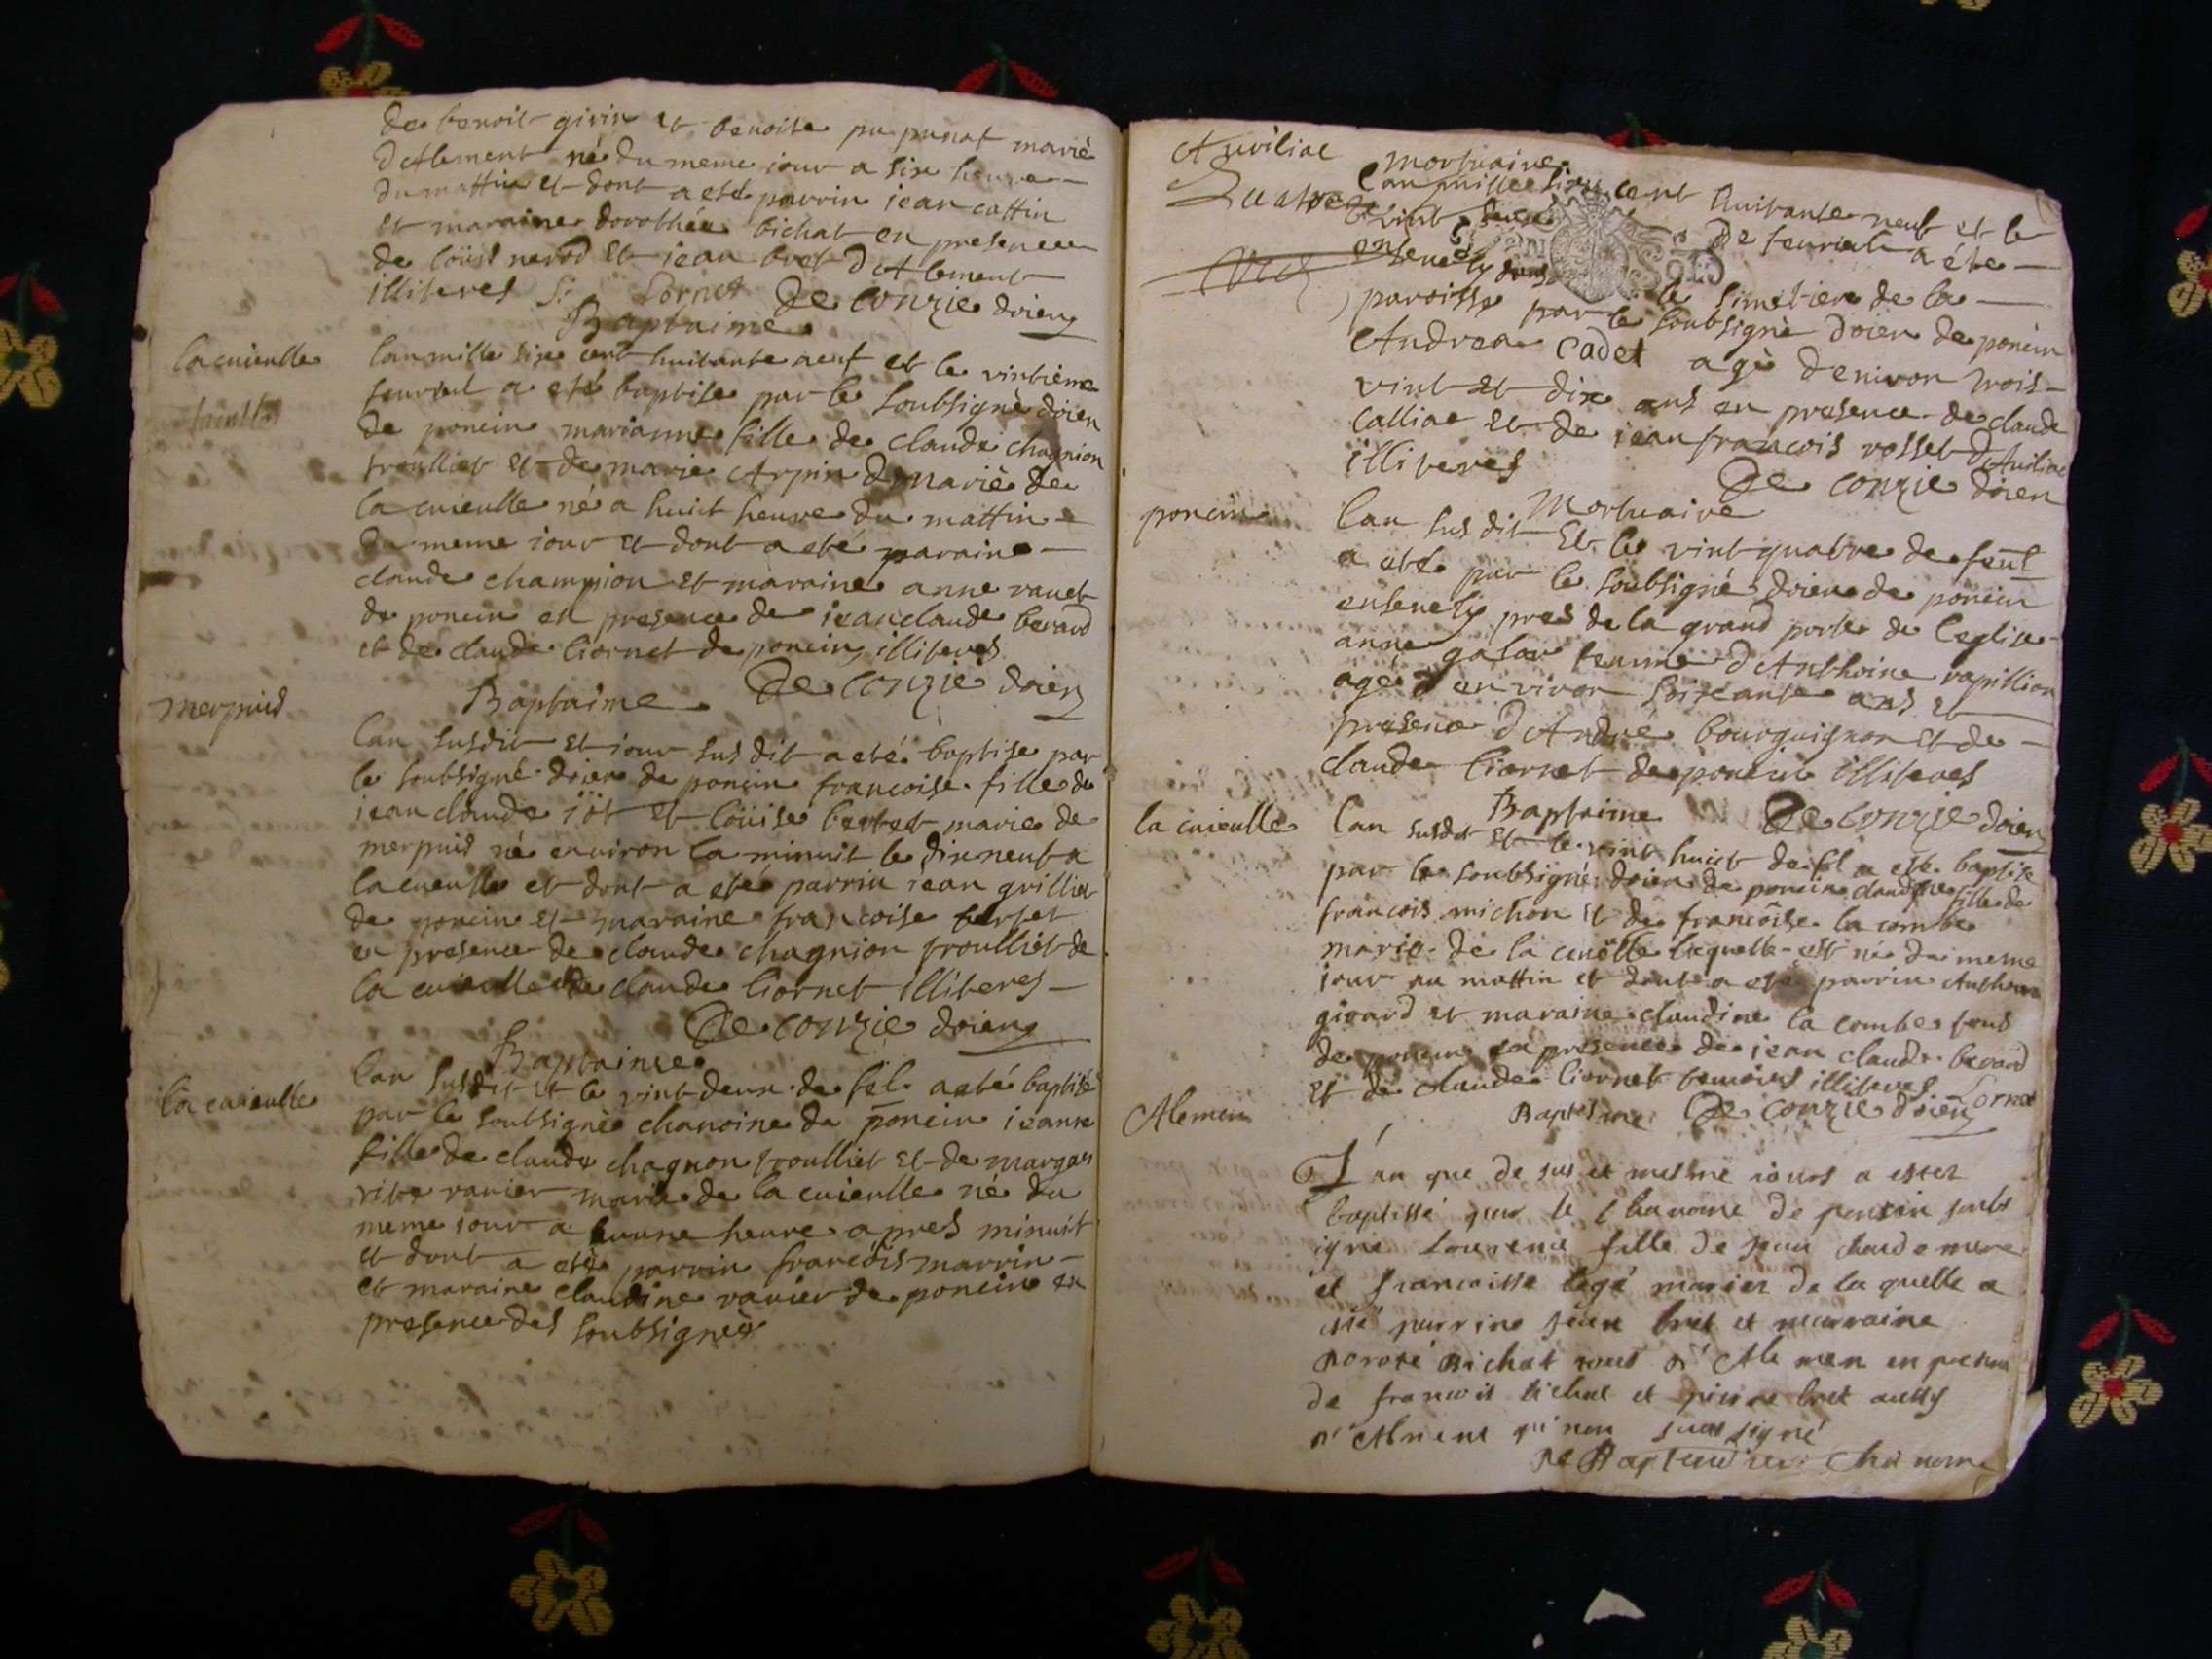 de benoit girin et benoite pu punat marié
d'Alement né du meme iour a six heure
du mattin et dont a eté parrin iean cattin
et maraine dorothée bichat en presence
de loüis nerod et iean bret d'Alement
illiteres Lornet De Conzie doien
Baptaime
la cuieulle
lan mille six cent huitante neuf et le vintième
feuriel a eté baptise par le soubsigné doien
de poncin marianne fille de claude chagnion
troulliet et de marie Arpin marié de
la cuieulle né a huict heure du mattin
du meme iour et dont a eté paraine
claude champion et maraine anne rauet
de poncin en presence de iean claude berard
et de claude liornet de poncin illiteres
De Conzie doien
merpuid
Baptaime
lan susdit et iour sus dit a eté baptise par
le soubsigné doien de poncin francoise fille de
iean claude iöt et loüise berbet marie de
merpuid né enuiron la minuit le dixneuf a
la cueulle et dont a eté parrin iean grilliet
de poncin et maraine francoise
en presence de claude chagnion troulliet de
la cuieulle de claude liornet illiteres
De Conzie doien
Baptaime
la cuieulle
lan susdit et le vint deux de fel. a eté baptisé
par le soubsigné chanoine de poncin ieanne
fille de claude chagnon troulliet et de margue
rite rauier marié de la cuieulle né du
meme iour a heure apres minuit
et dont a eté parrin francois marrin
et maraine claudine rauier de poncin en
presence des soubsignés
Auriliac
mortuaire
lan mille six cent huitante neuf et le
vint de feuriel a éte
enseuely dans le simetiere de la
paroisse par le soubsigné doien de poncin
Andrea Cadet agé d'eniron trois
vint et dix ans en presence de claude
calliat et de iean francois rosset d'Auriliac
illiteres
De Conzie doien
mortuaire
poncin
lan sus dit et le vint quatre de feul
a eté par le soubsigné doien de poncin
enseuely pres de la grand porte de l'eglise
anne galar femme d'Anthoine rapillion
agé d'enviror soixante ans et
presence d'André bourguignon et de
claude liornet de poncin illiteres
Baptaime De Conzie doien
la cuieulle
lan susdit et le vint huict de fel a ete baptise
par le soubsigné doien de poncin claudine fille de
francois michon et de francoise la combe
marie de la cueulle laquelle est né du meme
iour au mattin et dont a eté parrin Anthoine
girard et maraine claudine la combe tous
de poncin en presence de iean claude berard
et de claude liornet temoins illiteres Lornet
Baptesme De Conzie doien
Alemen
L'an que de sus et mesme iours a estez
baptissé par le chanoine de poncin soubs
igné Lourence fille de jean
et francoisse legé marier de la quelle a
esté parrine jean bret et marraine
doroté Bichat tous d'Alemen en presen
de francois bichat et pierre bret aussy
d'Alment qi non sont signé
Chanoine